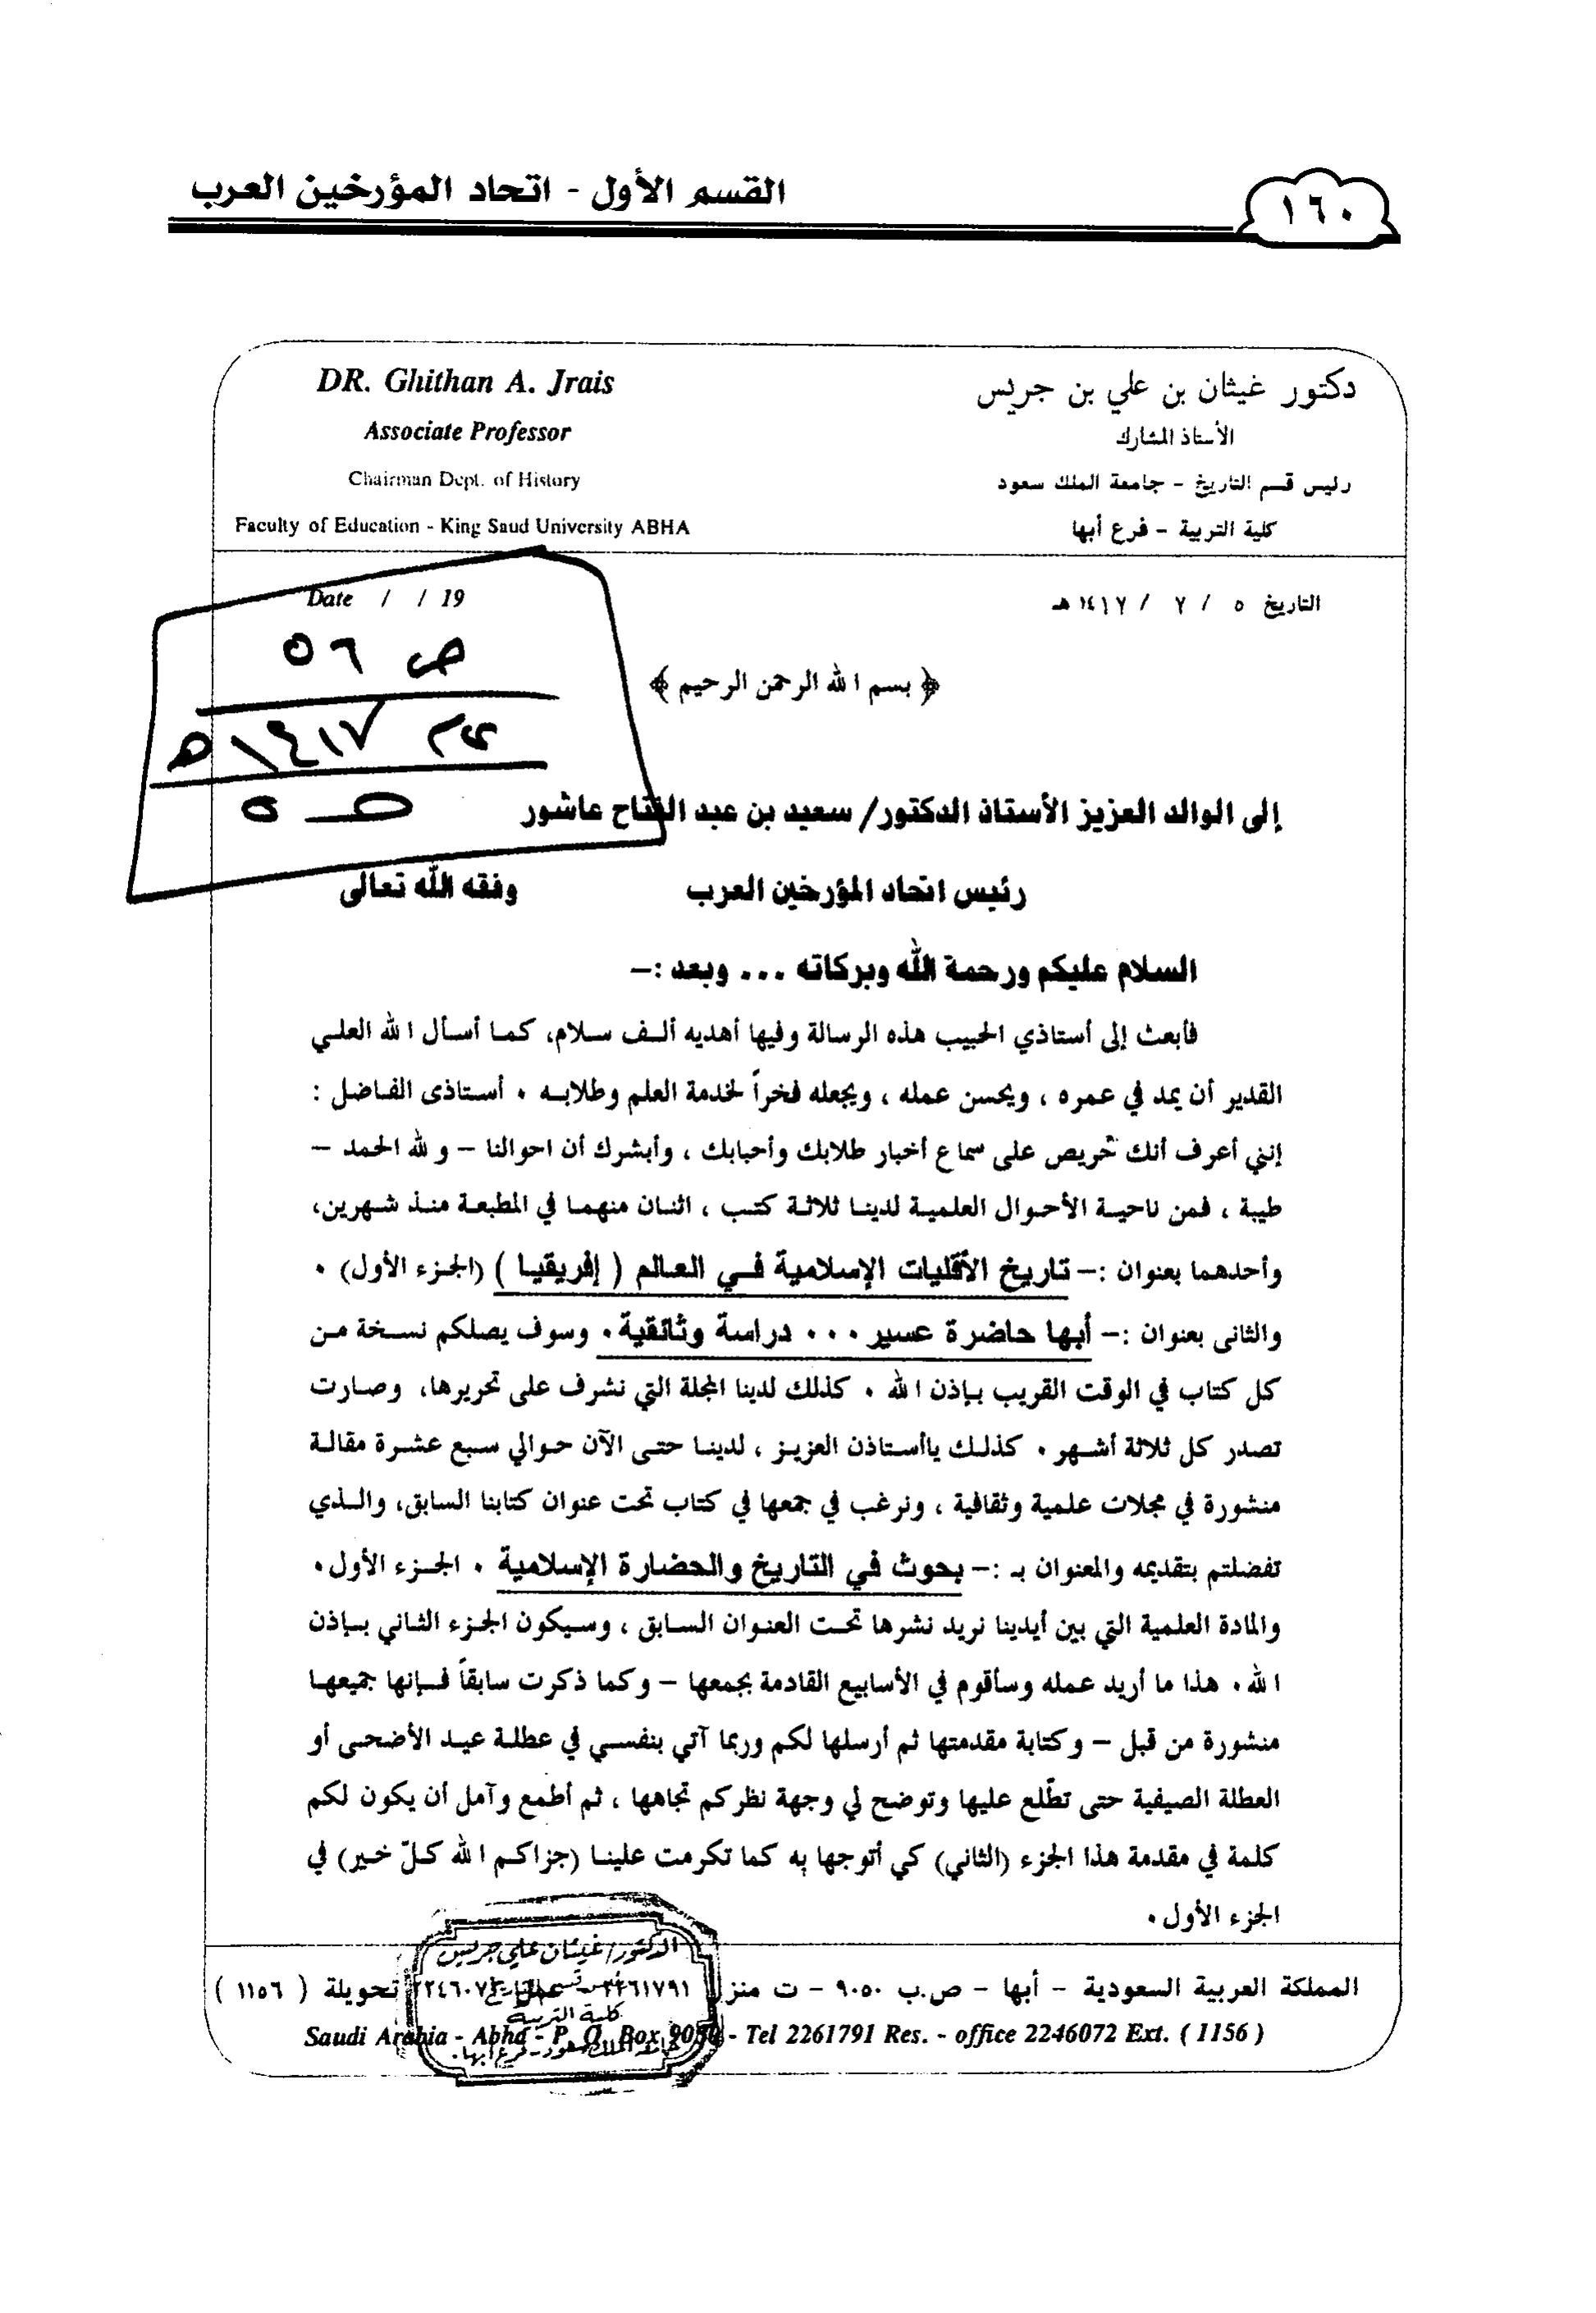 القسم الأول - اتحاد المؤرخين العرب
١٦٠
DR. Ghithan A. Jrais
Associate Professor
Chairman Dept. of History
Faculty of Education - King Saud University ABHA
دكتور غيثان بن علي بن جريس
الأستاذ المشارك
رئيس قسم التاريخ - جامعة الملك سعود
كلية التربية - فرع أبها
Date / / 19
التاريخ ٥ / ٧ / ١٤١٧ هـ
ص ٥٦
١٤١٧ هـ
﴿ بسم الله الرحمن الرحيم ﴾
إلى الوالد العزيز الأستاذ الدكتور/ سعيد بن عبد الفتاح عاشور
رئيس اتحاد المؤرخين العرب وفقه الله تعالى
السلام عليكم ورحمة الله وبركاته ... وبعد :-
فأبعث إلى أستاذي الحبيب هذه الرسالة وفيها أهديه ألف سلام، كما أسأل الله العلي
القدير أن يمد في عمره ، ويحسن عمله ، ويجعله فخراً لخدمة العلم وطلابه . أستاذى الفاضل :
إنني أعرف أنك حريص على سماع أخبار طلابك وأحبابك ، وأبشرك أن احوالنا - ولله الحمد -
طيبة ، فمن ناحية الأحوال العلمية لدينا ثلاثة كتب ، اثنان منهما في المطبعة منذ شهرين،
وأحدهما بعنوان :- تاريخ الأقليات الإسلامية في العالم ( إفريقيا ) (الجزء الأول) .
والثانى بعنوان :- أبها حاضرة عسير ... دراسة وثائقية. وسوف يصلكم نسخة من
كل كتاب في الوقت القريب بإذن الله . كذلك لدينا المجلة التي نشرف على تحريرها، وصارت
تصدر كل ثلاثة أشهر . كذلك ياأستاذن العزيز ، لدينا حتى الآن حوالي سبع عشرة مقالة
منشورة في مجلات علمية وثقافية ، ونرغب في جمعها في كتاب تحت عنوان كتابنا السابق، والذي
تفضلتم بتقديمه والمعنوان بـ :- بحوث في التاريخ والحضارة الإسلامية . الجزء الأول.
والمادة العلمية التي بين أيدينا نريد نشرها تحت العنوان السابق ، وسيكون الجزء الثاني بإذن
الله. هذا ما أريد عمله وسأقوم في الأسابيع القادمة بجمعها - وكما ذكرت سابقاً فإنها جميعها
منشورة من قبل - وكتابة مقدمتها ثم أرسلها لكم وربما آتي بنفسي في عطلة عيد الأضحى أو
العطلة الصيفية حتى تطّلع عليها وتوضح لي وجهة نظركم تجاهها ، ثم أطمع وآمل أن يكون لكم
كلمة في مقدمة هذا الجزء (الثاني) كي أتوجها به كما تكرمت علينا (جزاكم الله كلّ خير) في
الجزء الأول .
الدكتور/ غيثان علي جريس
المملكة العربية السعودية - أبها - ص.ب ٩٠٥٠ - ت منزل ٢٢٦١٧٩١ تحويلة ( ١١٥٦ )
كلية التربية
Saudi Arabia - Abha - P. O. Box 9050 - Tel 2261791 Res. - office 2246072 Ext. ( 1156 )